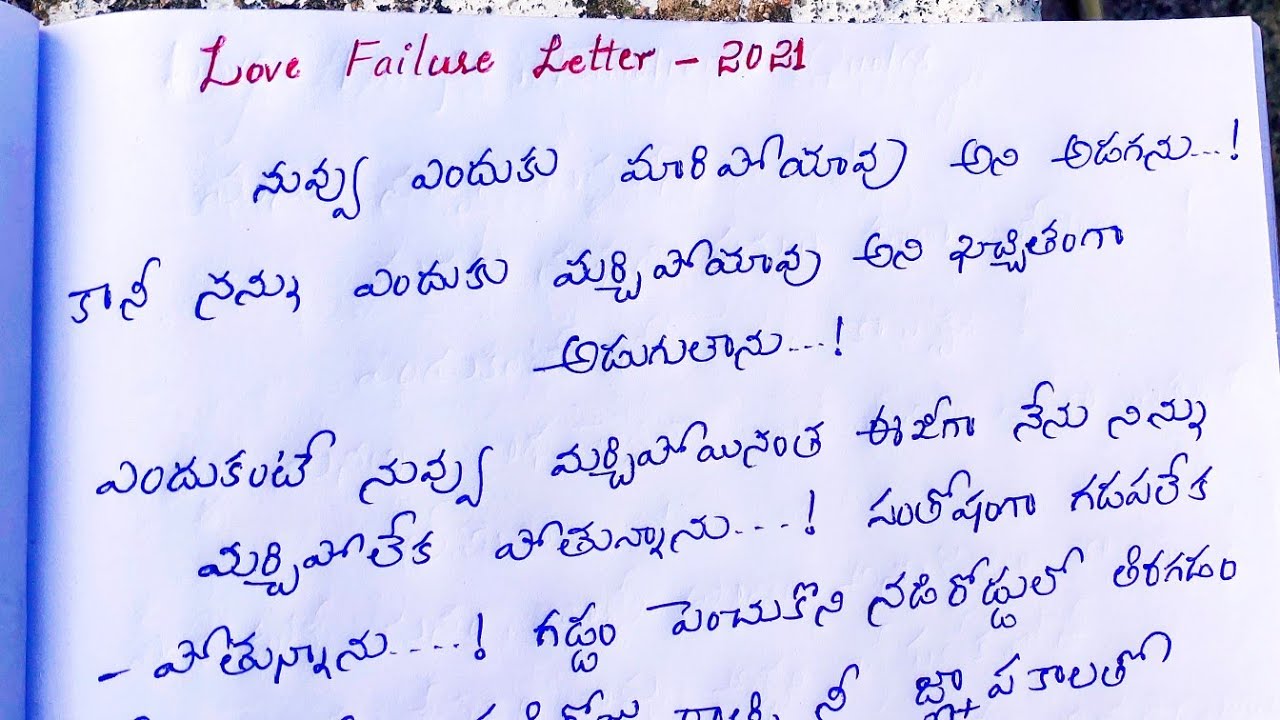 Love Failure Letter - 2021
నువ్వు ఎందుకు మారిపోయావు అని అడగను...!
కానీ నన్ను ఎందుకు మర్చిపోయావు అని ఖచ్చితంగా
అడుగుతాను...!
ఎందుకంటే నువ్వు మర్చిపోయినంత ఈజీగా నేను నిన్ను
మర్చిపోలేక పోతున్నాను....! సంతోషంగా గడపలేక
- పోతున్నాను....! గడ్డం పెంచుకొని నడిరోడ్డులో తిరగడం
నీ జ్ఞాపకాలతో